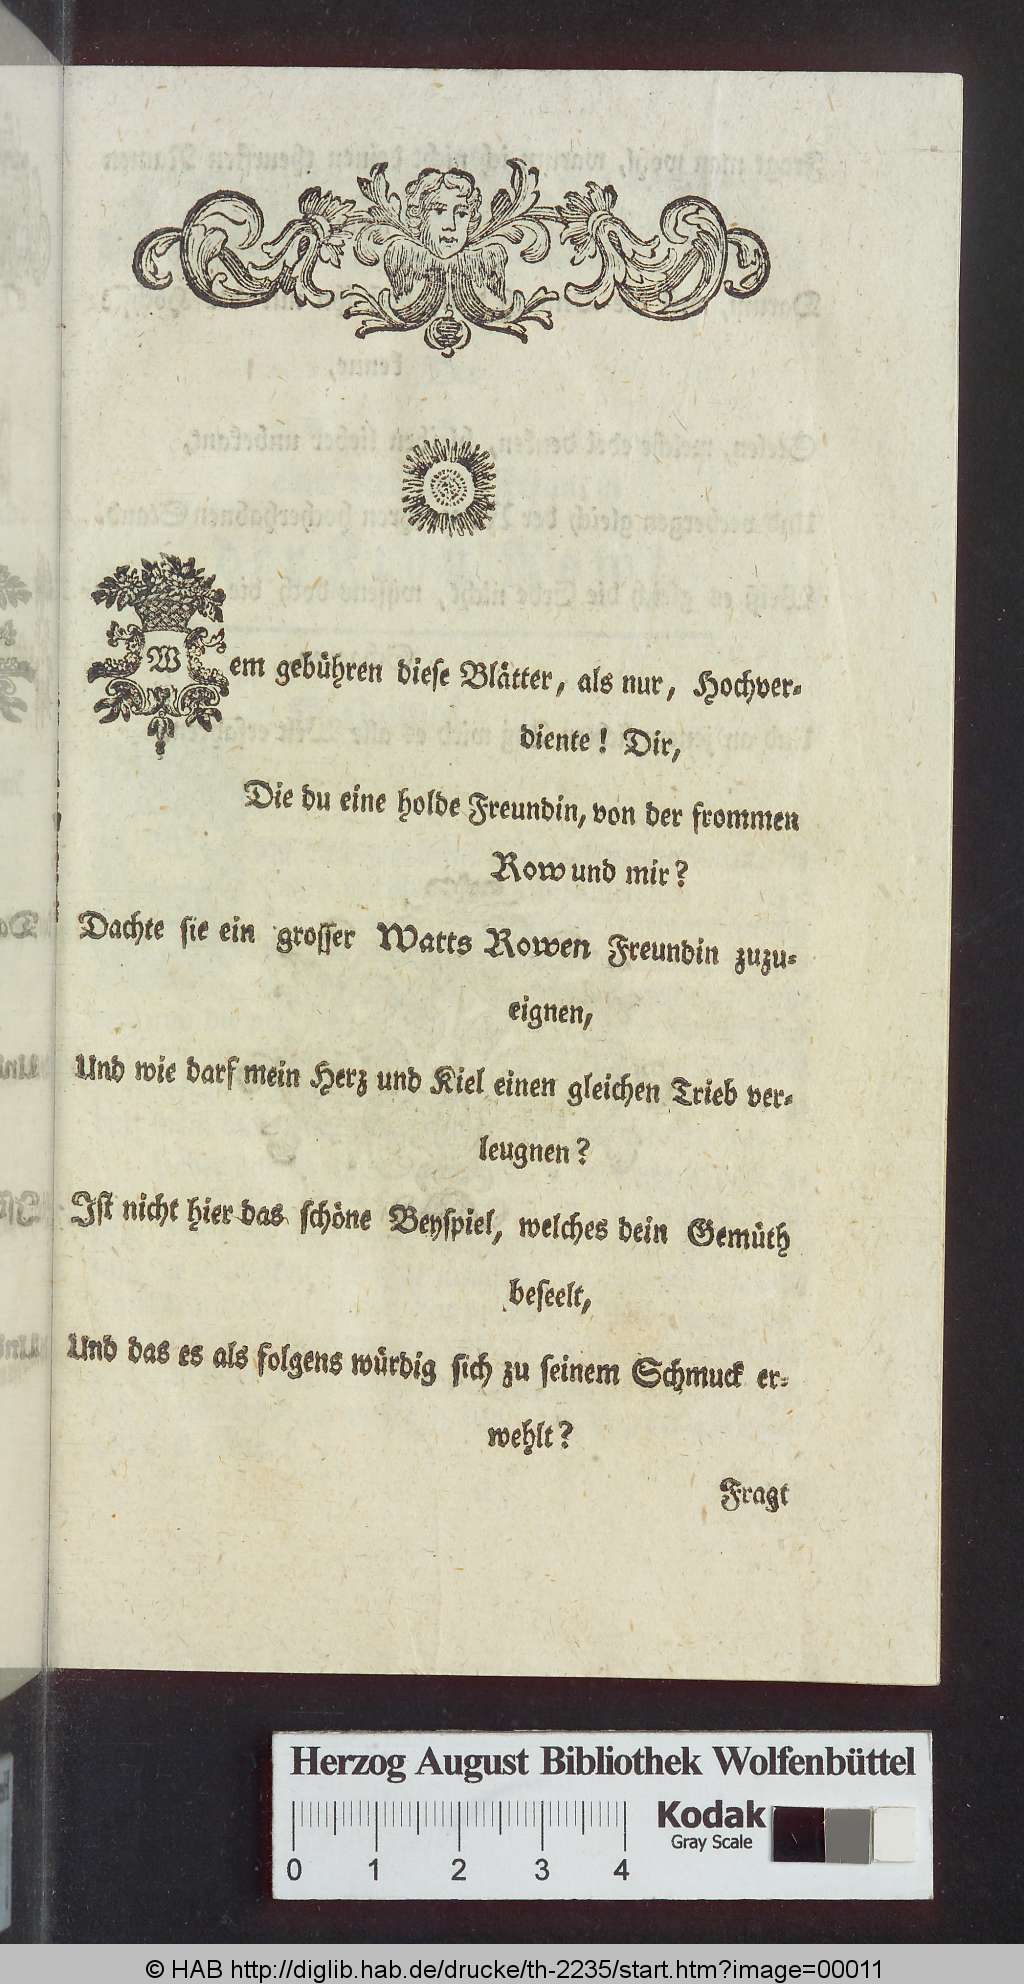 Wem gebühren dieſe Blätter, als nur, Hochver-
diente! Dir,
Die du eine holde Freundin, von der frommen
Row und mir?
Dachte ſie ein groſſer Watts Rowen Freundin zuzu-
eignen,
Und wie darf mein Herz und Kiel einen gleichen Trieb ver-
leugnen?
Iſt nicht hier das ſchöne Beyſpiel, welches dein Gemüth
beſeelt,
Und das es als folgens würdig ſich zu ſeinem Schmuck er-
wehlt?
Fragt
Herzog August Bibliothek Wolfenbüttel
Kodak
Gray Scale
0 1 2 3 4
© HAB http://diglib.hab.de/drucke/th-2235/start.htm?image=00011